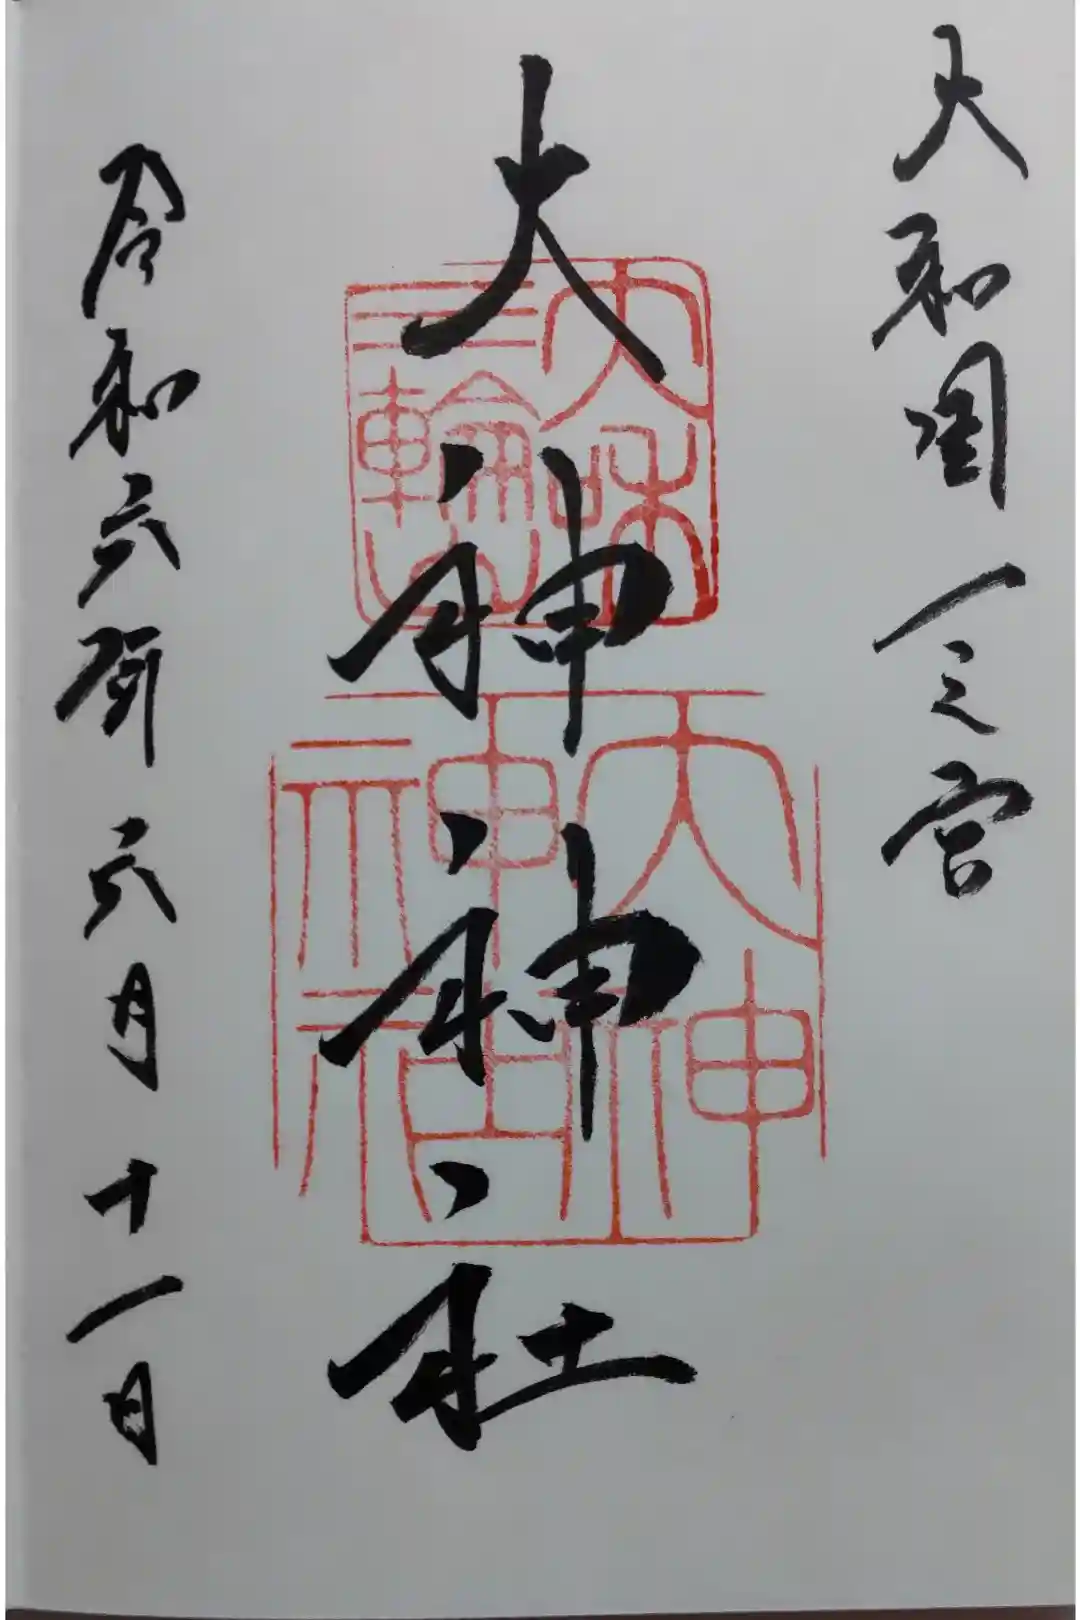 大和國一之宮
大神神社
大和
三輪山
大神
神社
令和六年六月十一日